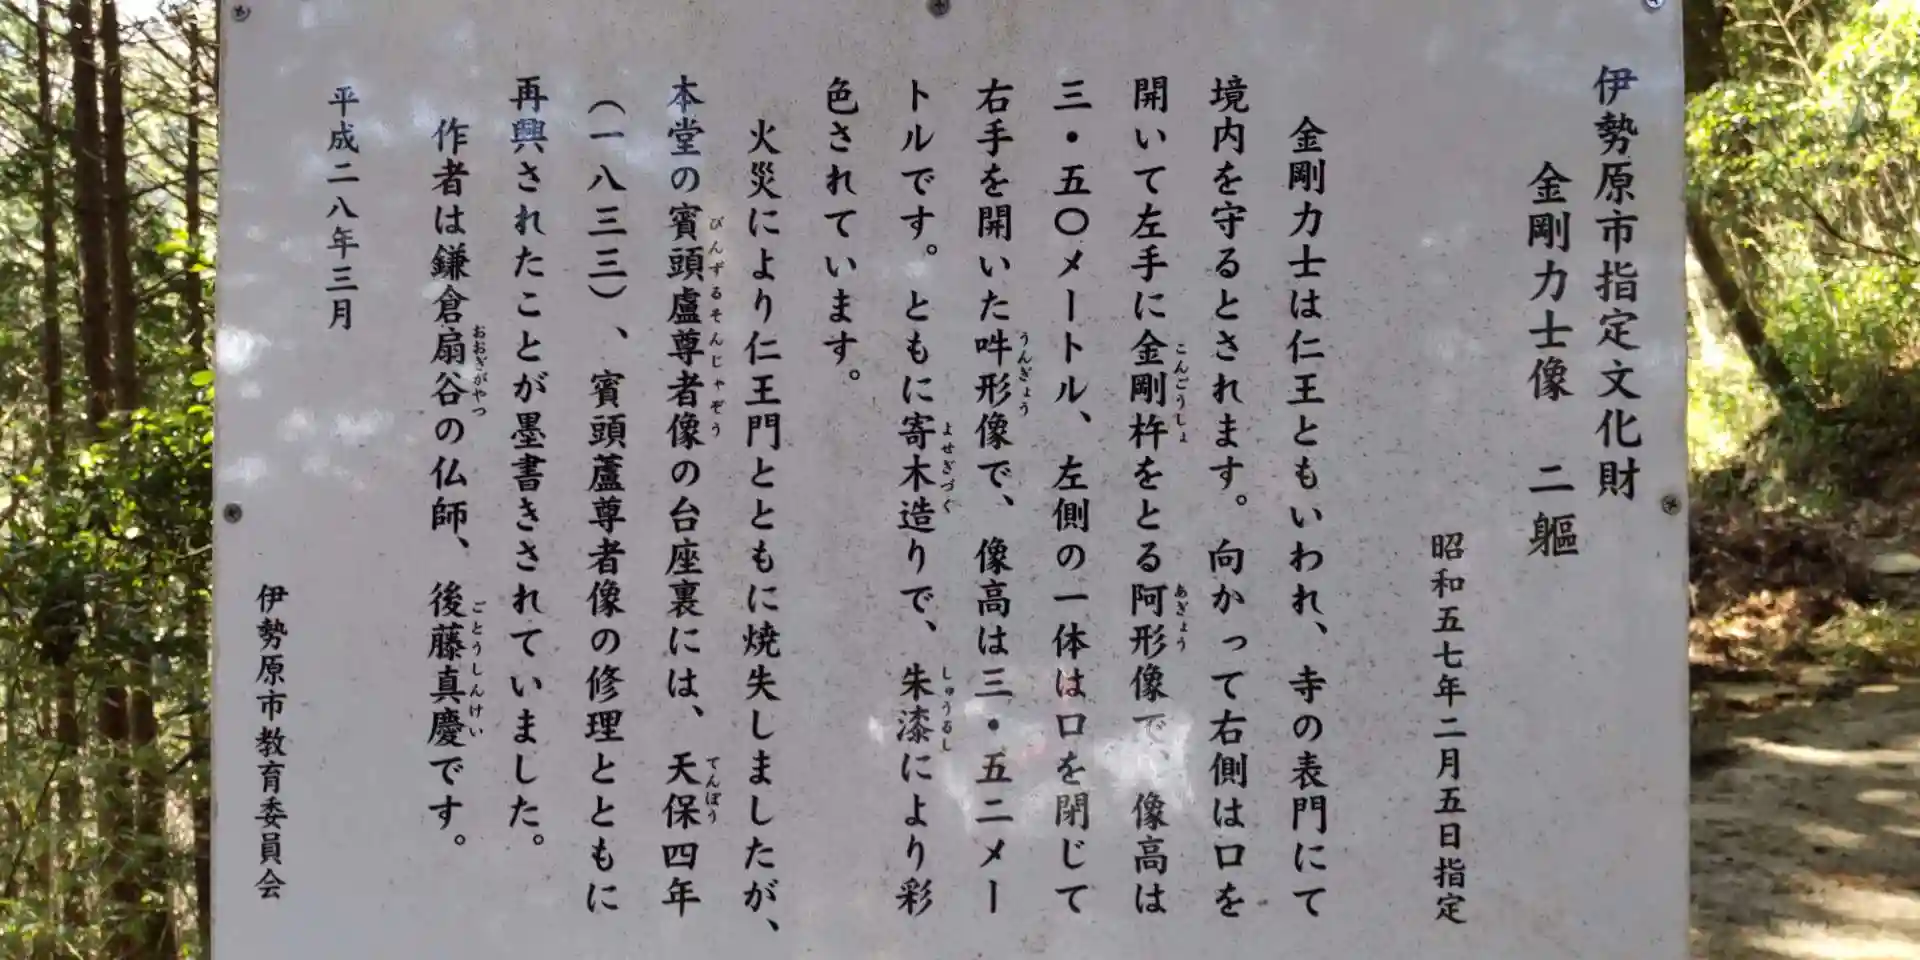 伊勢原市指定文化財
金剛力士像　二軀
昭和五七年二月五日指定
金剛力士は仁王ともいわれ、寺の表門にて
境内を守るとされます。向かって右側は口を
開いて左手に金剛杵をとる阿形像で、像高は
こんごうしょ
あぎょう
三・五〇メートル、左側の一体は口を閉じて
右手を開いた吽形像で、像高は三・五二メー
うんぎょう
トルです。ともに寄木造りで、朱漆により彩
よせぎづく
しゅうるし
色されています。
火災により仁王門とともに焼失しましたが、
本堂の賓頭盧尊者像の台座裏には、天保四年
びんずるそんじゃぞう
てんぽう
（一八三三）、賓頭蘆尊者像の修理とともに
再興されたことが墨書きされていました。
作者は鎌倉扇谷の仏師、後藤真慶です。
おおぎがやつ
ごとうしんけい
平成二八年三月
伊勢原市教育委員会